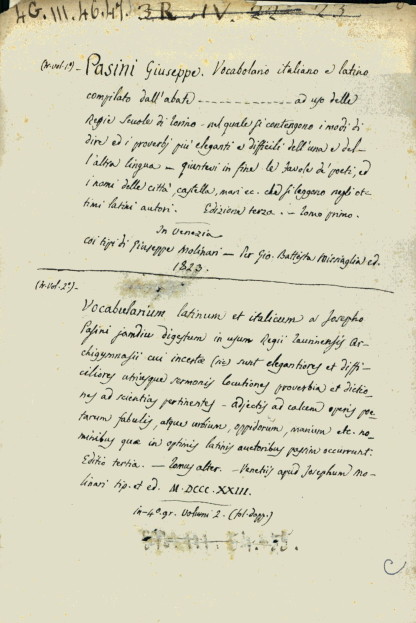 4G. III. 46. 47. 3R. IV. 23
(N. vol. 1º) - Pasini Giuseppe. Vocabolario italiano e latino
compilato dall'abate - - - - - - - - - - ad uso delle
Regie Scuole di Torino - nel quale si contengono i modi di
dire ed i proverbj più eleganti e difficili dell'una e del-
l'altra lingua - giuntevi in fine le favole de' poeti, ed
i nomi delle città, castella, mari ec. che si leggono negli ot-
timi latini autori. Edizione terza. - Tomo primo.
In Venezia
coi tipi di Giuseppe Molinari - Per Gio. Battista Missiaglia ed.
1823.
(N. vol. 2º) -
Vocabularium latinum et italicum a Josepho
Pasini jamdiu digestum in usum Regii Taurinensis Ar-
chigymnasii cui incertæ (sic) sunt elegantiores et diffi-
ciliores utriusque sermonis locutiones proverbia et dictio-
nes ad scientias pertinentes - adjectis ad calcem operis poe-
tarum fabulis, atque urbium, oppidorum, marium etc. no-
minibus quæ in optimis latinis auctoribus passim occurrunt.
Editio tertia. - Tomus alter. - Venetiis apud Josephum Mo-
linari tip. et ed. M.DCCC.XXIII.
In-4º. gr. Volumi 2. (fol. dopp.)
C